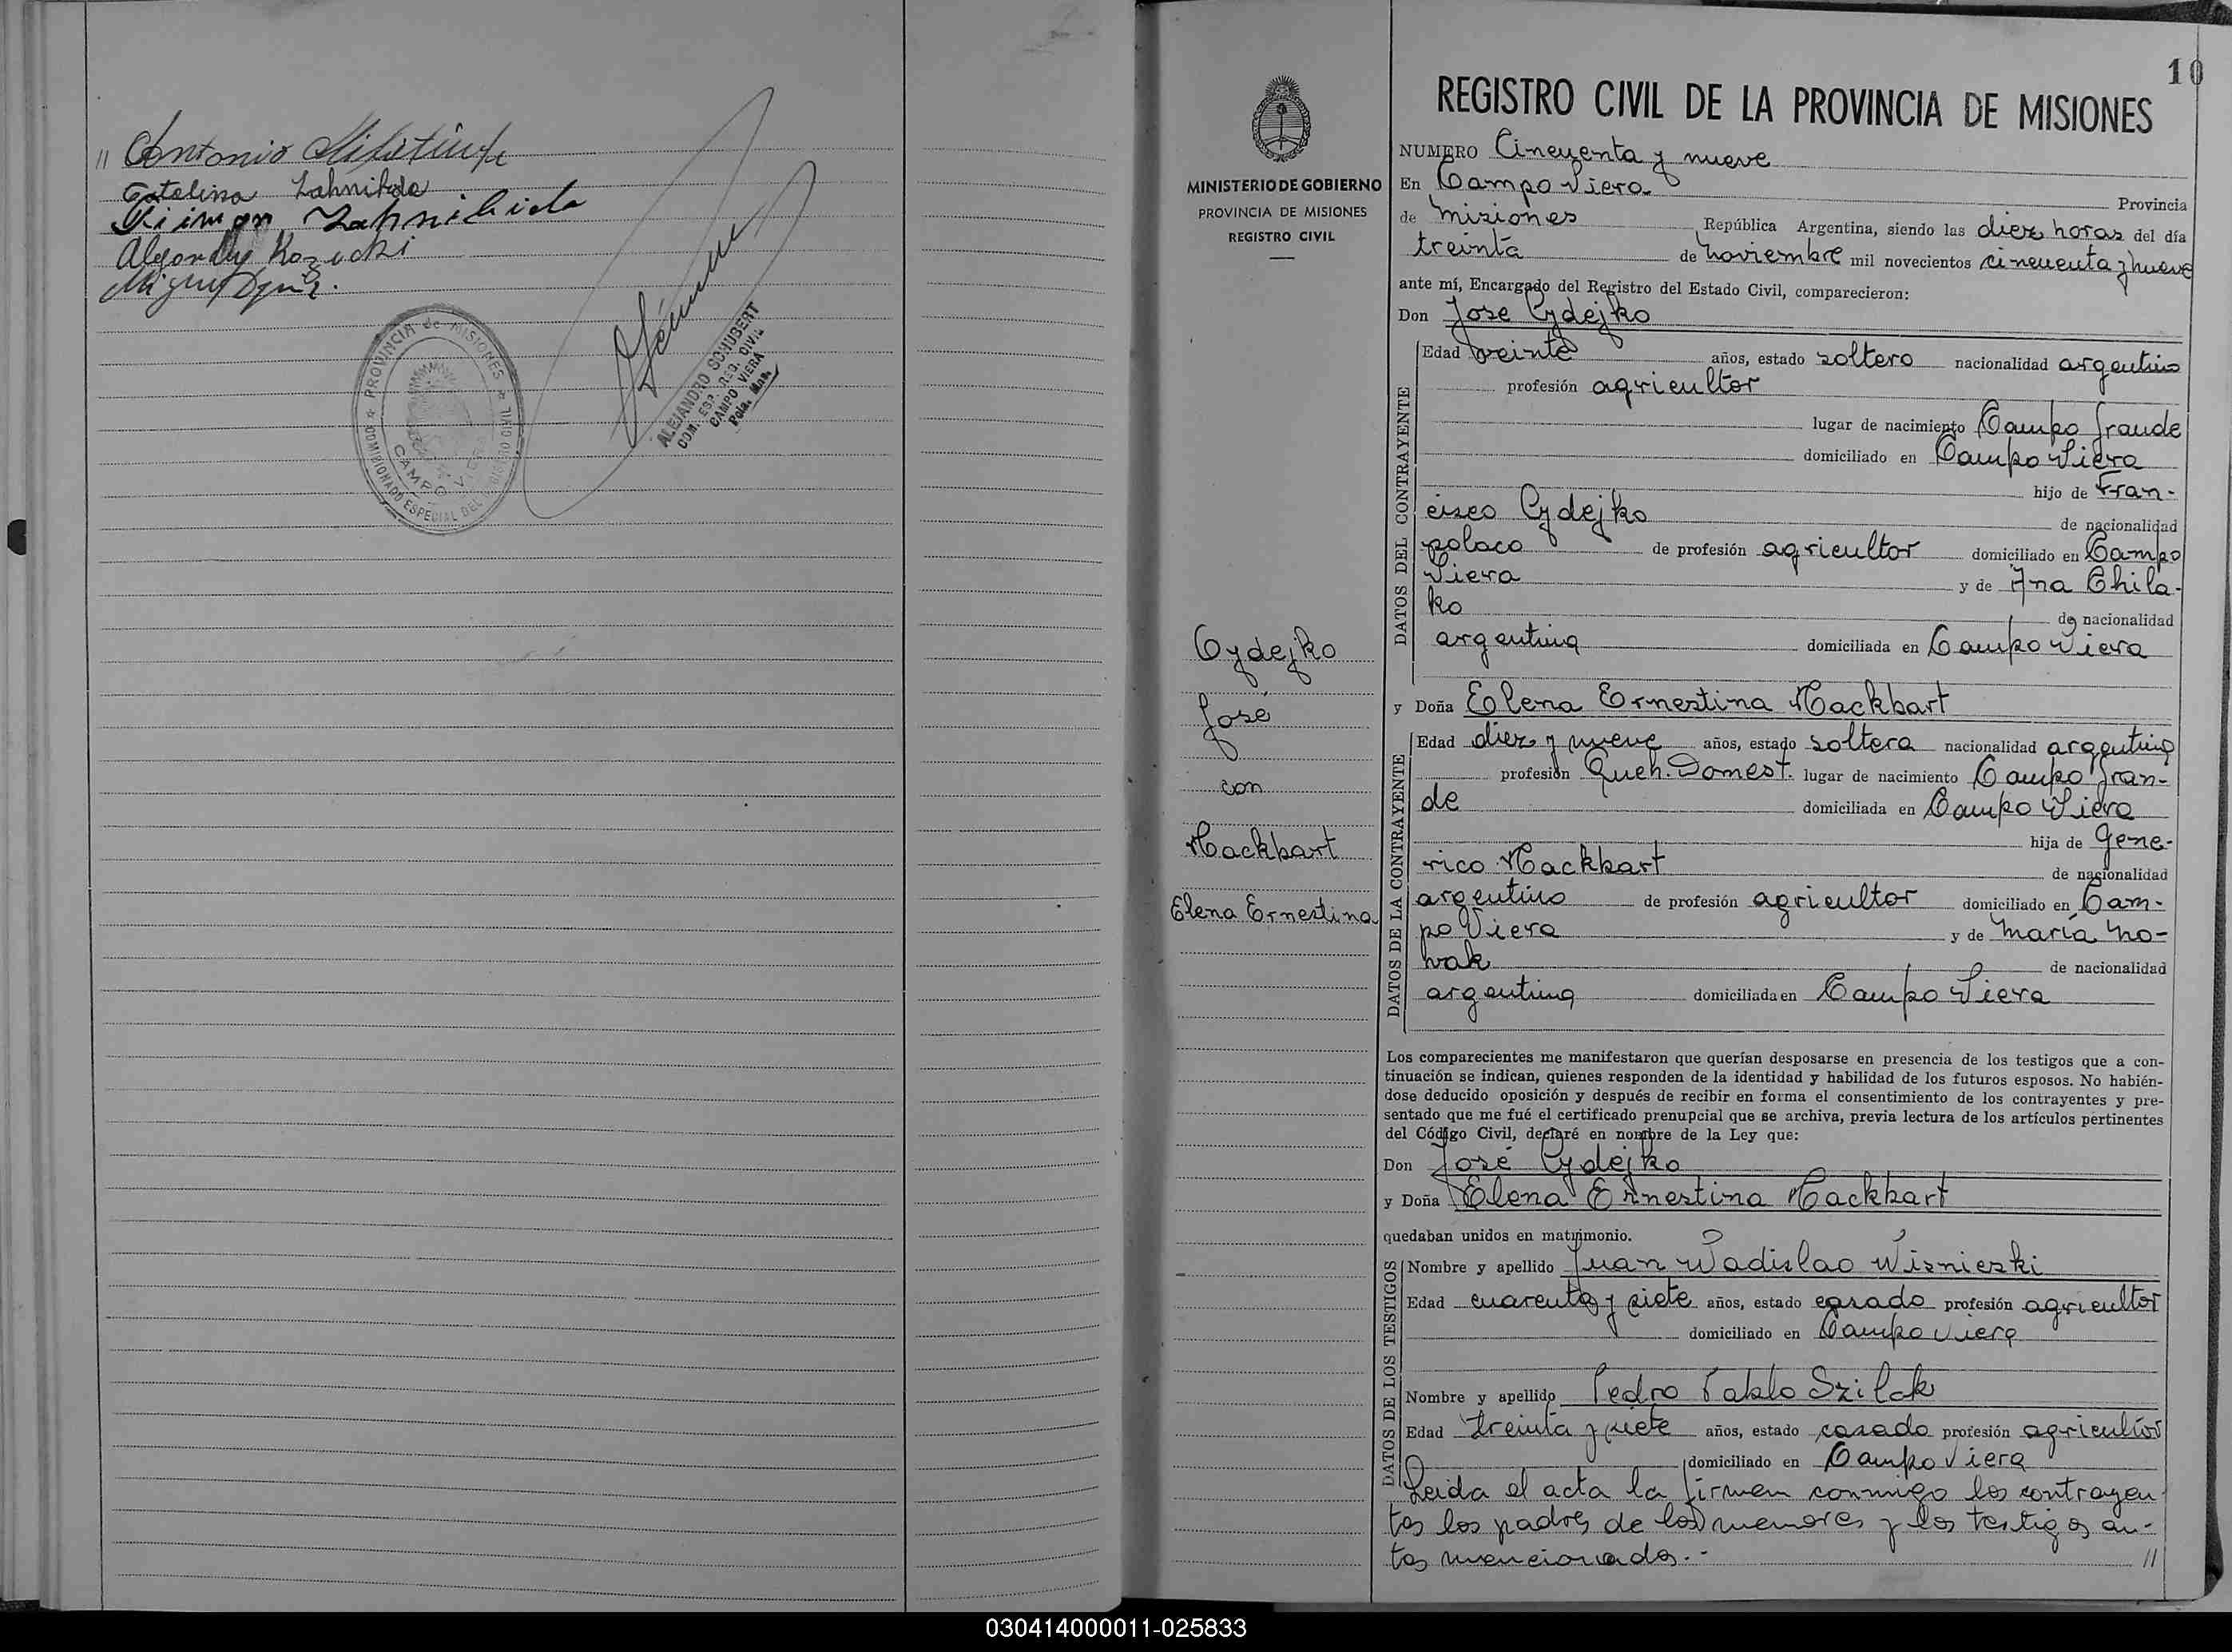 " Antonio
Catalina
Alejandro
Miguel
PROVINCIA de MISIONES
COMISIONADO ESPECIAL DEL REGISTRO CIVIL
CAMPO VIERA
ALEJANDRO SCHUBERT
COM. ESP. REG. CIVIL
CAMPO VIERA
Pcia. Mnes.
10
MINISTERIO DE GOBIERNO
PROVINCIA DE MISIONES
REGISTRO CIVIL
Cydejko
José
con
Hackbart
Elena Ernestina
REGISTRO CIVIL DE LA PROVINCIA DE MISIONES
NUMERO Cincuenta y nueve
En Campo Viera Provincia
de Misiones República Argentina, siendo las diez horas del día
treinta de Noviembre mil novecientos cincuenta y nueve
ante mí, Encargado del Registro del Estado Civil, comparecieron:
Don Jose Cydejko
DATOS DEL CONTRAYENTE
Edad veinte años, estado soltero nacionalidad argentino
profesión agricultor
lugar de nacimiento Campo Grande
domiciliado en Campo Viera
hijo de Fran-
cisco Cydejko de nacionalidad
polaco de profesión agricultor domiciliado en Campo
Viera y de Ana Chila-
ko de nacionalidad
argentina domiciliada en Campo Viera
y Doña Elena Ernestina Hackbart
DATOS DE LA CONTRAYENTE
Edad diez y nueve años, estado soltera nacionalidad argentina
profesión Queh. Domest. lugar de nacimiento Campo Gran-
de domiciliada en Campo Viera
hija de Gene-
rico Hackbart de nacionalidad
argentino de profesión agricultor domiciliado en Cam-
po Viera y de María No-
vak de nacionalidad
argentina domiciliada en Campo Viera
Los comparecientes me manifestaron que querían desposarse en presencia de los testigos que a con-
tinuación se indican, quienes responden de la identidad y habilidad de los futuros esposos. No habién-
dose deducido oposición y después de recibir en forma el consentimiento de los contrayentes y pre-
sentado que me fué el certificado prenupcial que se archiva, previa lectura de los artículos pertinentes
del Código Civil, declaré en nombre de la Ley que:
Don José Cydejko
y Doña Elena Ernestina Hackbart
quedaban unidos en matrimonio.
DATOS DE LOS TESTIGOS
Nombre y apellido Juan Wadislao Wisnieski
Edad cuarenta y siete años, estado casado profesión agricultor
domiciliado en Campo Viera
Nombre y apellido Pedro Pablo Szilak
Edad treinta y siete años, estado casado profesión agricultor
domiciliado en Campo Viera
Leida el acta la firman conmigo los contrayen
tes los padres de los menores y los testigos an-
tes mencionados.- "
030414000011-025833